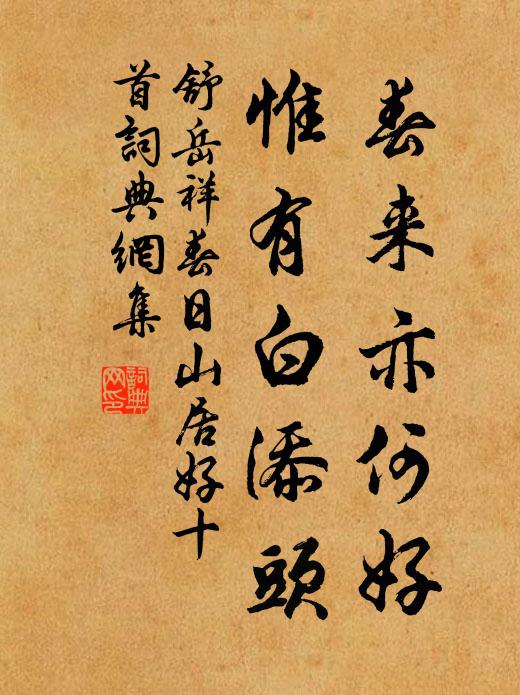 春来亦何好
惟有白添頭
舒岳祥春日山居好十
首詞典網集
詞典
网印